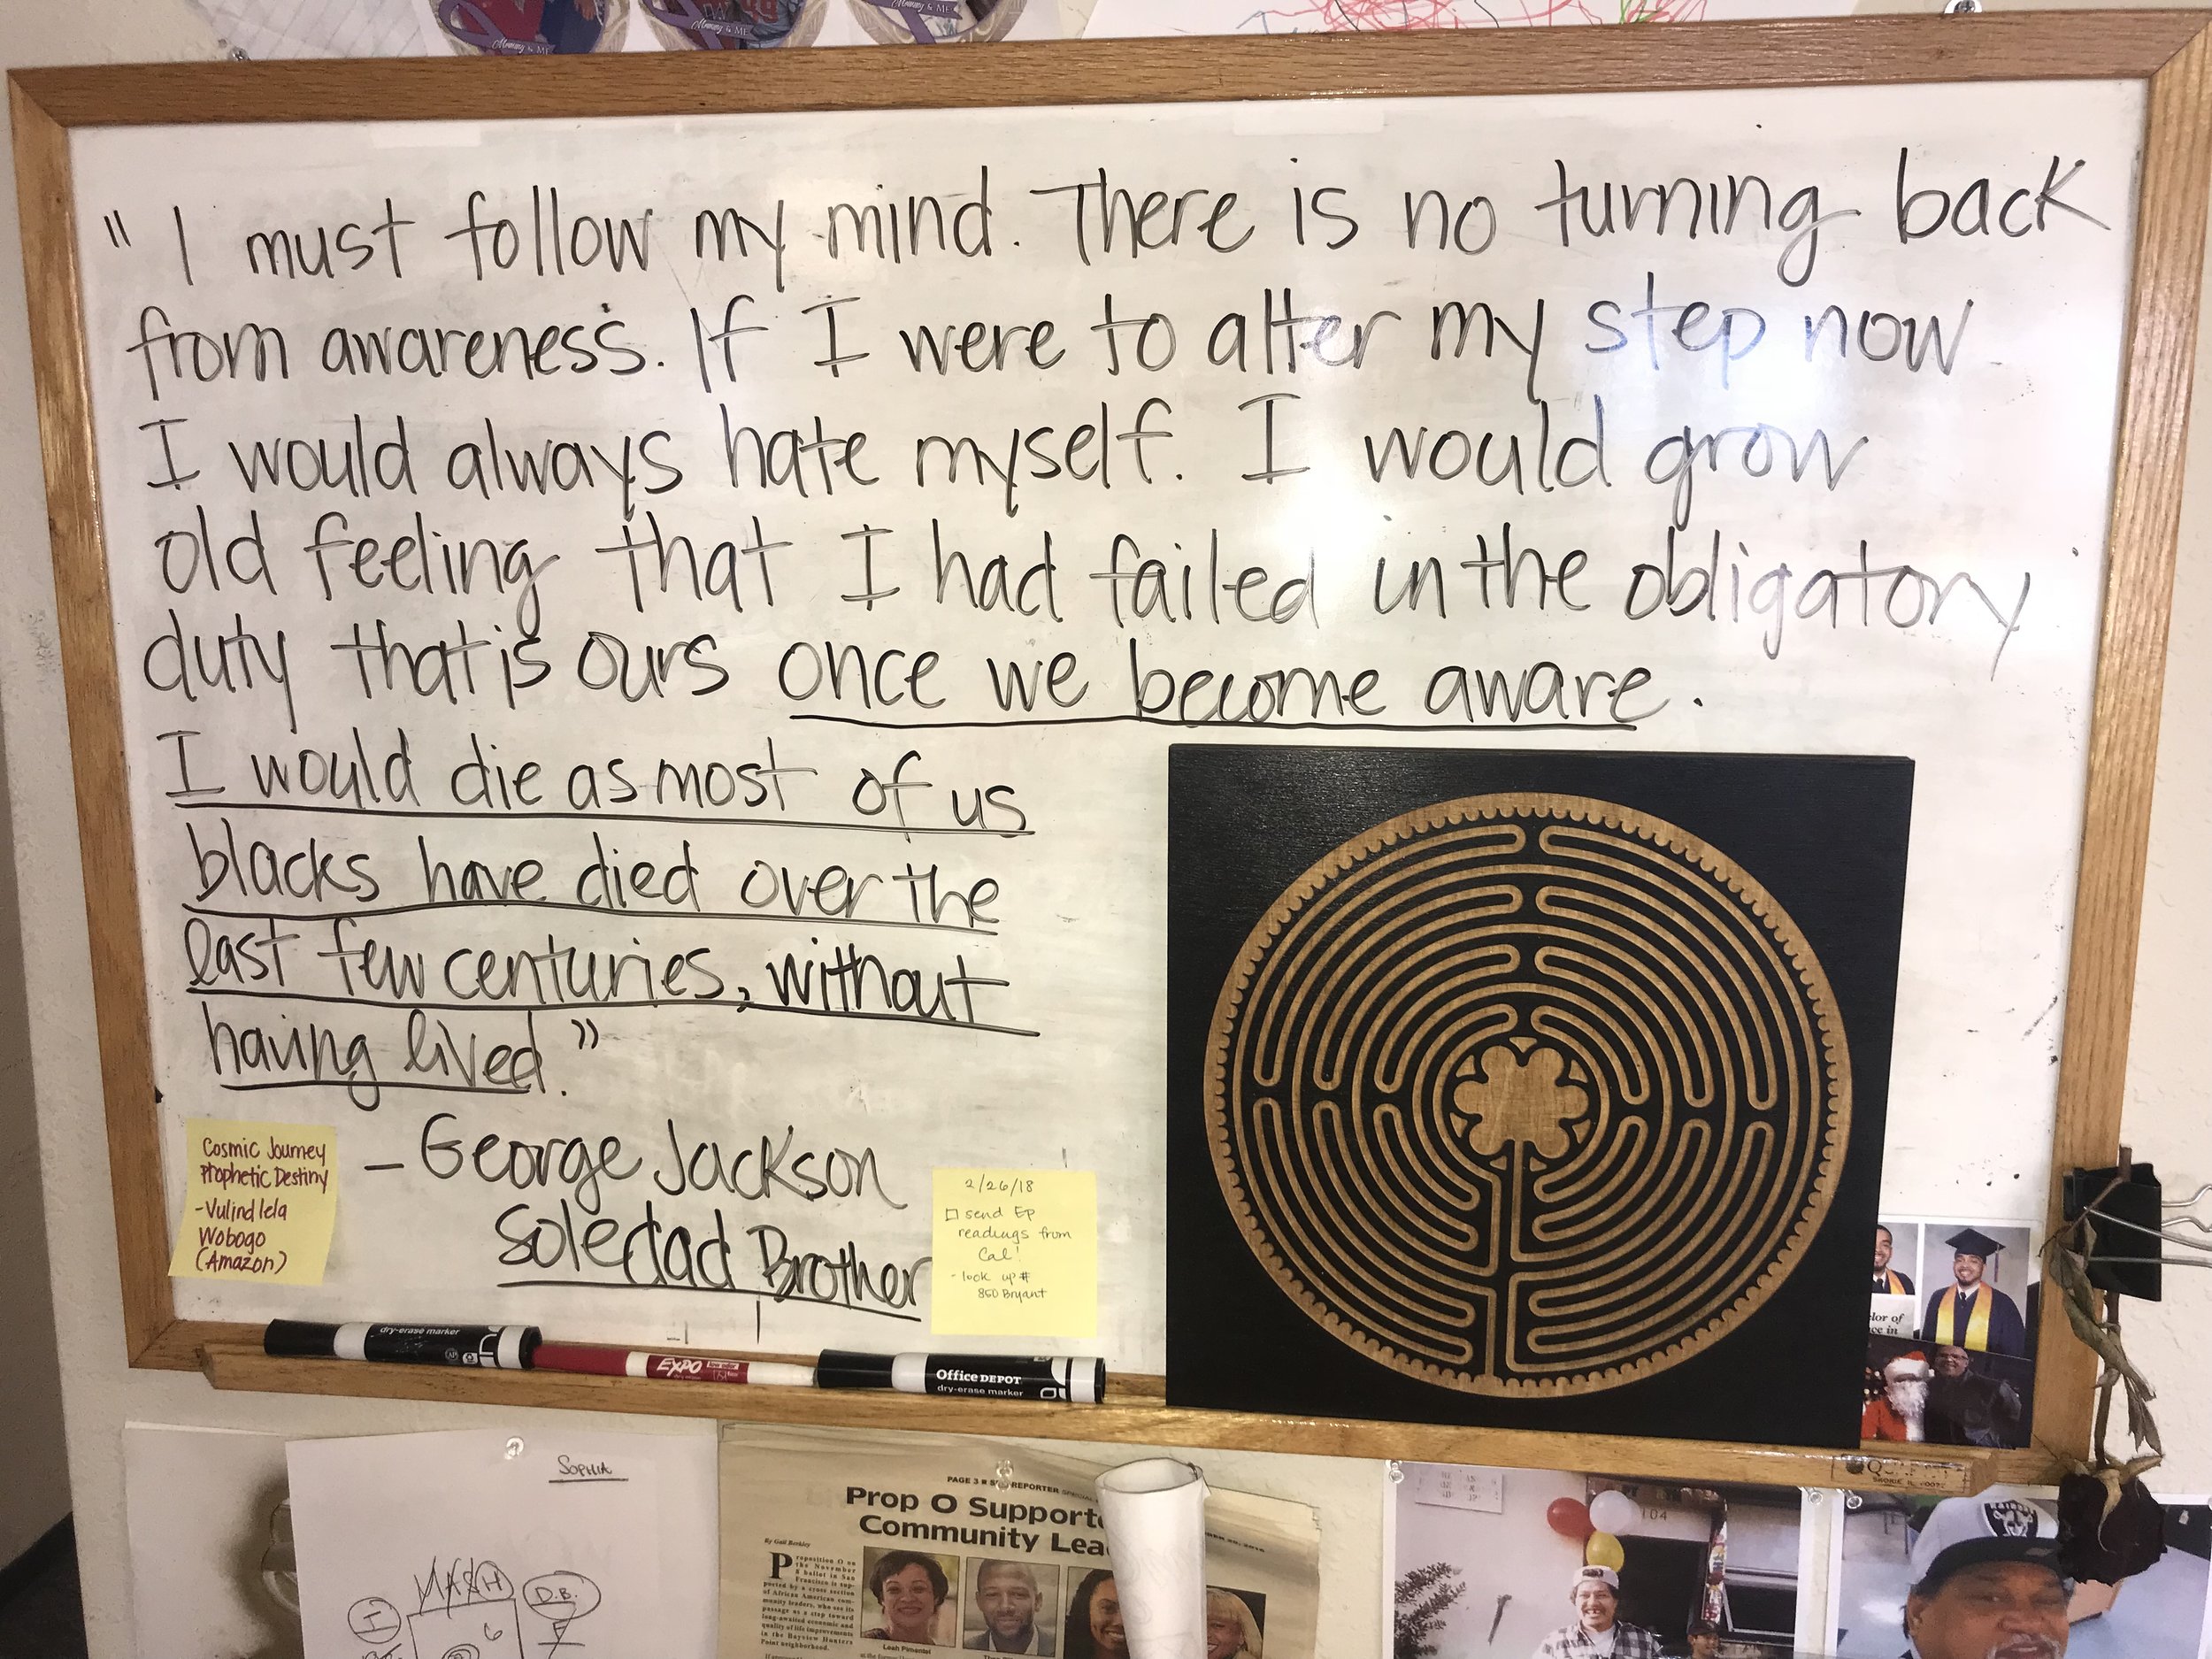 Mommy & ME
Mommy & ME
Mommy & ME
" I must follow my mind. There is no turning back
from awareness. If I were to alter my step now
I would always hate myself. I would grow
old feeling that I had failed in the obligatory
duty that is ours once we become aware.
I would die as most of us
blacks have died over the
last few centuries, without
having lived."
- George Jackson
Soledad Brother
Cosmic Journey
Prophetic Destiny
- Vulindlela
Wobogo
(Amazon)
2/26/18
send EP
readings from
Cal!
- look up #
850 Bryant
dry-erase marker
EXPO
Office DEPOT
dry-erase marker
SOPHIA
MASH
I
D.B.
6
PAGE 3
REPORTER
Prop O
Community
By Gail Berkley
Proposition O on
the November
8 ballot in San
Francisco is sup-
ported by a cross section
of African American com-
munity leaders, who see its
passage as a step toward
long-awaited economic and
quality of life improvements
in the Bayview Hunters
Point neighborhood.
Leah Pimentel
104
RAIDERS